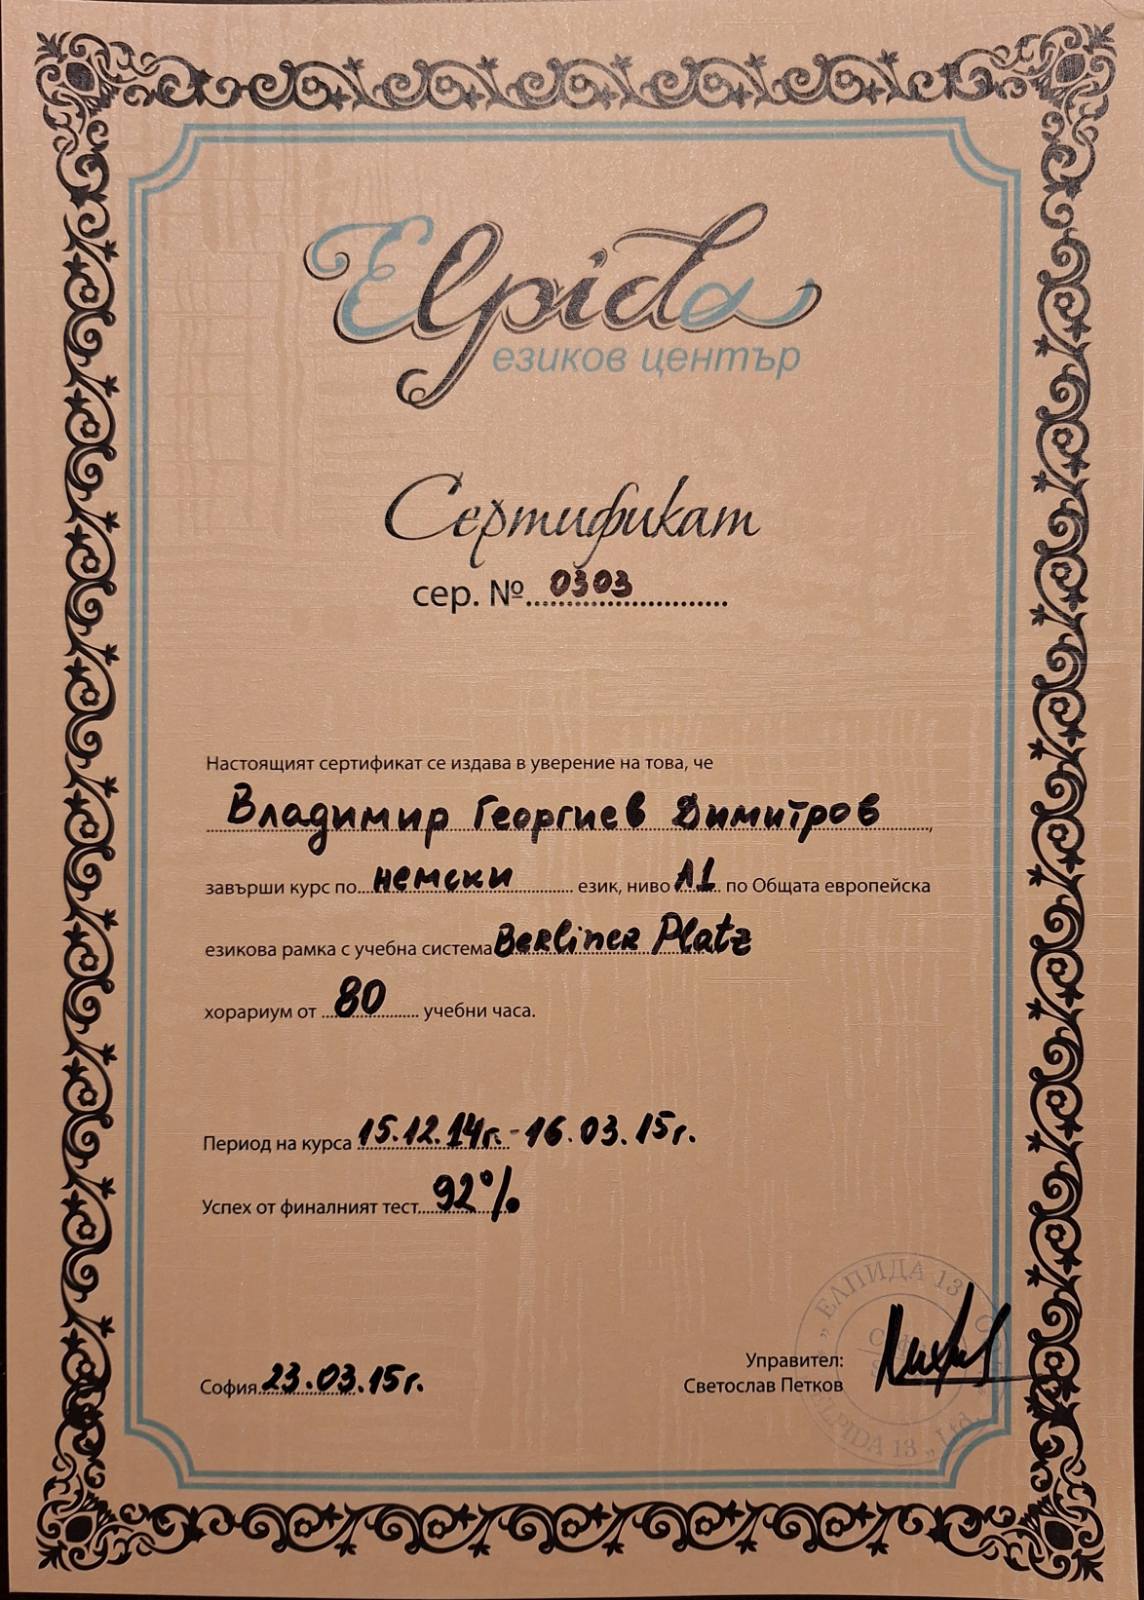 Elpida
езиков център
Сертификат
сер. №. 0303
Настоящият сертификат се издава в уверение на това, че
Владимир Георгиев Димитров,
завърши курс по немски език, ниво А1 по Общата европейска
езикова рамка с учебна система Berliner Platz
хорариум от 80 учебни часа.
Период на курса 15.12.14г. - 16.03.15г.
Успех от финалният тест 92%
"ЕЛПИДА 13"
Управител:
София 23.03.15г.
Светослав Петков
ELPIDA 13" Ltd.